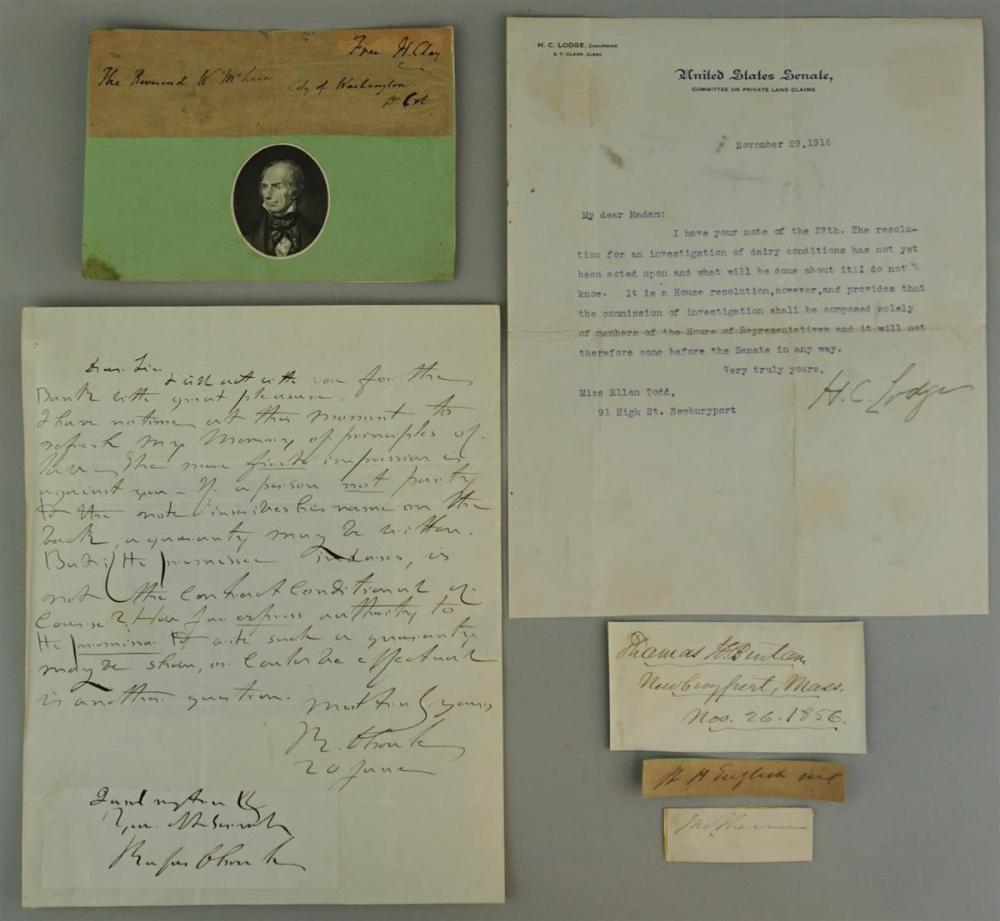 Free H. Clay
The Reverend W McLain
City of Washington
H. C. LODGE, CHAIRMAN
United States Senate,
COMMITTEE ON PRIVATE LAND CLAIMS.
November 29,1916
My dear Madam:
I have your note of the 27th. The resolu-
tion for an investigation of dairy conditions has not yet
been acted upon and what will be done about it I do not
know. It is a House resolution,however,and provides that
the commission of investigation shall be composed solely
of members of the House of Representatives and it will not
therefore come before the Senate in any way.
Very truly yours,
H. C. Lodge
Miss Ellen Todd,
91 High St. Newburyport
Dear Sir.
I will act with you for the
Bank with great pleasure.
I have no time at this moment to
refresh my memory of principles of
law. The mere first impression is
against you - If a person not party
to the note inscribes his name on the
back, a guaranty may be written.
But if the promissee indorses, is
not the contract conditional of
course? How far express authority to
the promissee to write such a guaranty
may be shown, or could be effectual
is another question.
yours
R. Choate
20 June
Rufus Choate
Thomas H. Benton
Newburyport, Mass.
Nov. 26. 1856.
W H English